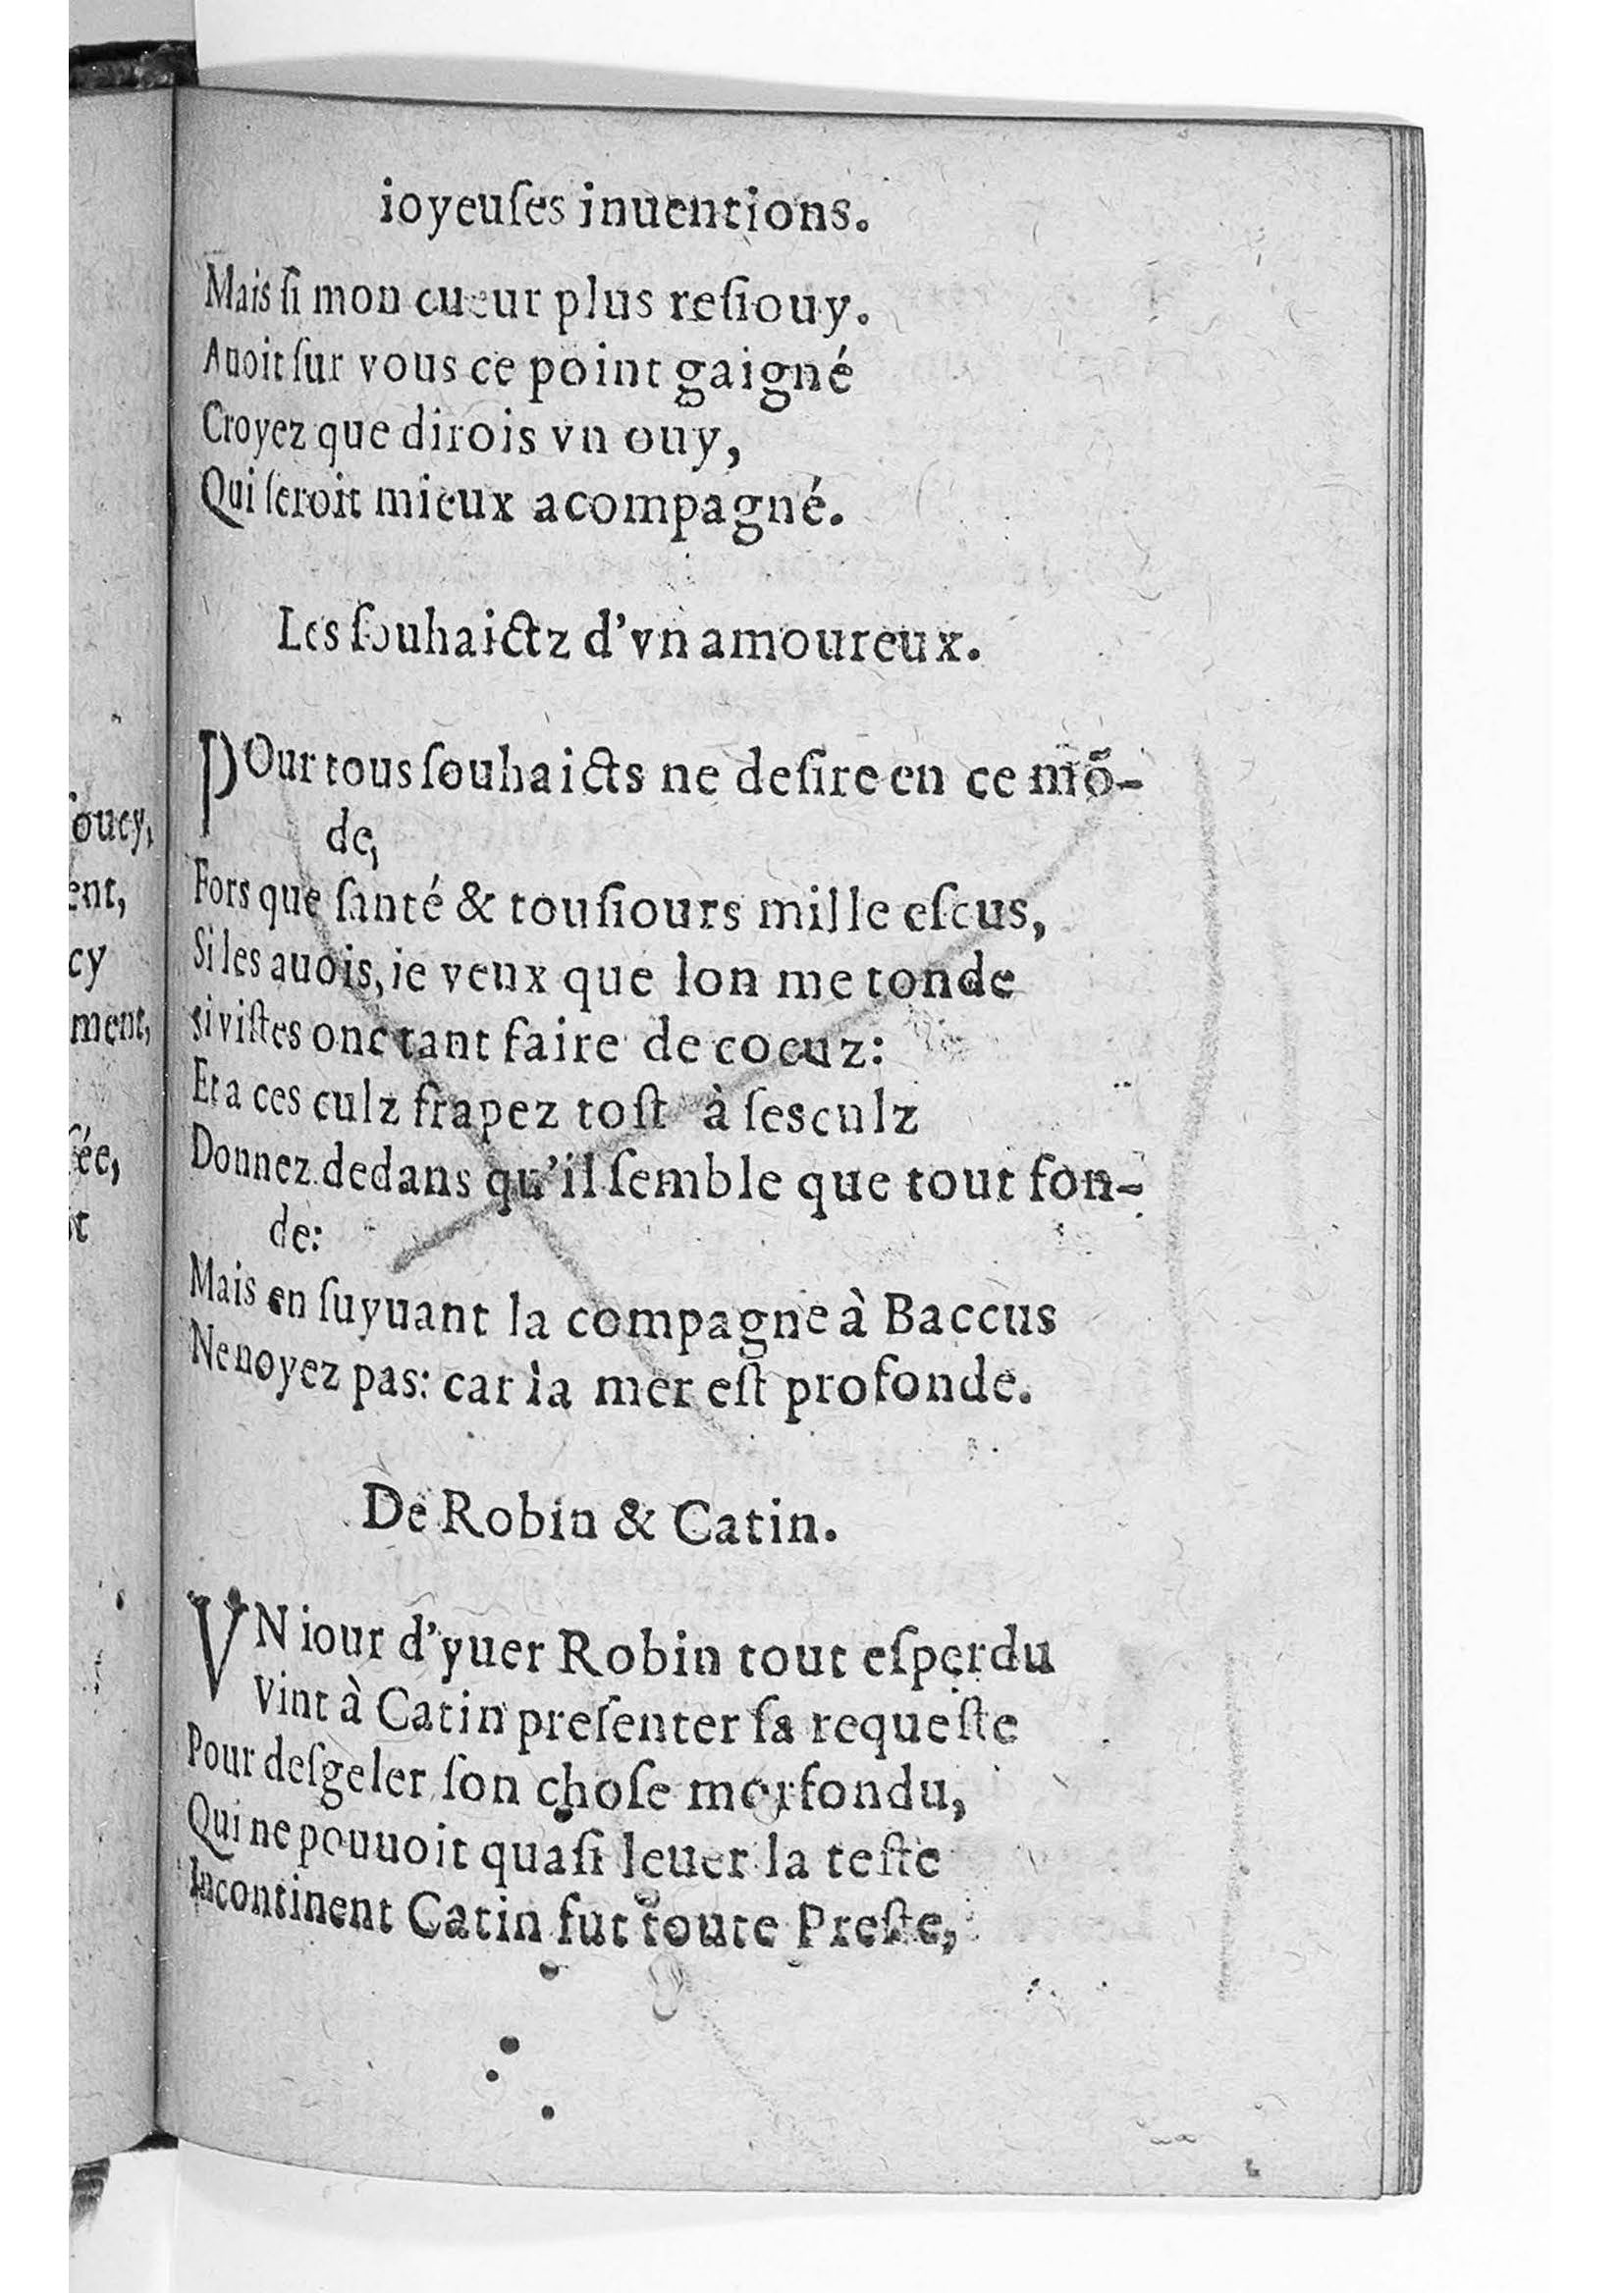 ioyeuſes inuentions.
Mais ſi mon cueur plus reſiouy.
Auoit ſur vous ce point gaigné
Croyez que dirois vn ouy,
Qui ſeroit mieux acompagné.
Les ſouhaictz d'vn amoureux.
POur tous ſouhaicts ne deſire en ce mõ-
de,
Fors que ſanté & touſiours mille eſcus,
Si les auois, ie veux que lon me tonde
si viſtes onc tant faire de cocuz:
Et a ces culz frapez toſt à ſesculz
Donnez dedans qu'il ſemble que tout fon-
de:
Mais en ſuyuant la compagne à Baccus
Ne noyez pas: car la mer eſt profonde.
De Robin & Catin.
VN iour d'yuer Robin tout eſperdu
Vint à Catin preſenter ſa requeſte
Pour deſgeler ſon choſe morfondu,
Qui ne pouuoit quaſi leuer la teſte
Incontinent Catin fut toute Preſte,
oucy,
ent,
cy
ment,
ſée,